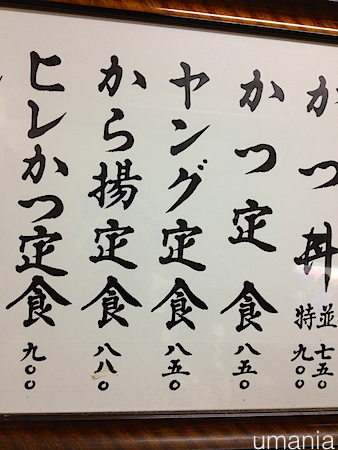 かつ丼
並 七五〇
特 九〇〇
かつ定食 八五〇
ヤング定食 八五〇
から揚定食 八八〇
ヒレかつ定食 九〇〇
umania